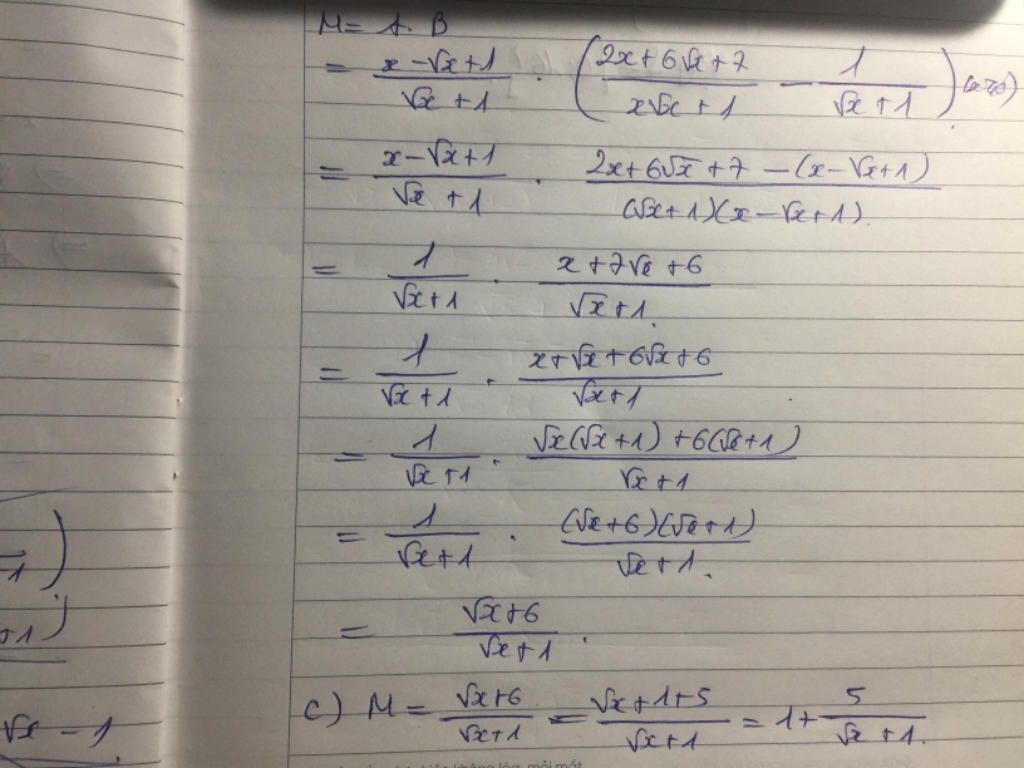 M = A. B
= (x - √x + 1)/(√x + 1) . ((2x + 6√x + 7)/(x√x + 1) - 1/(√x + 1))
= (x - √x + 1)/(√x + 1) . (2x + 6√x + 7 - (x - √x + 1))/((√x + 1)(x - √x + 1)).
= 1/(√x + 1) . (x + 7√x + 6)/(√x + 1).
= 1/(√x + 1) . (x + √x + 6√x + 6)/(√x + 1)
= 1/(√x + 1) . (√x(√x + 1) + 6(√x + 1))/(√x + 1)
= 1/(√x + 1) . ((√x + 6)(√x + 1))/(√x + 1).
= (√x + 6)/(√x + 1).
c) M = (√x + 6)/(√x + 1) = (√x + 1 + 5)/(√x + 1) = 1 + 5/(√x + 1).
√x - 1